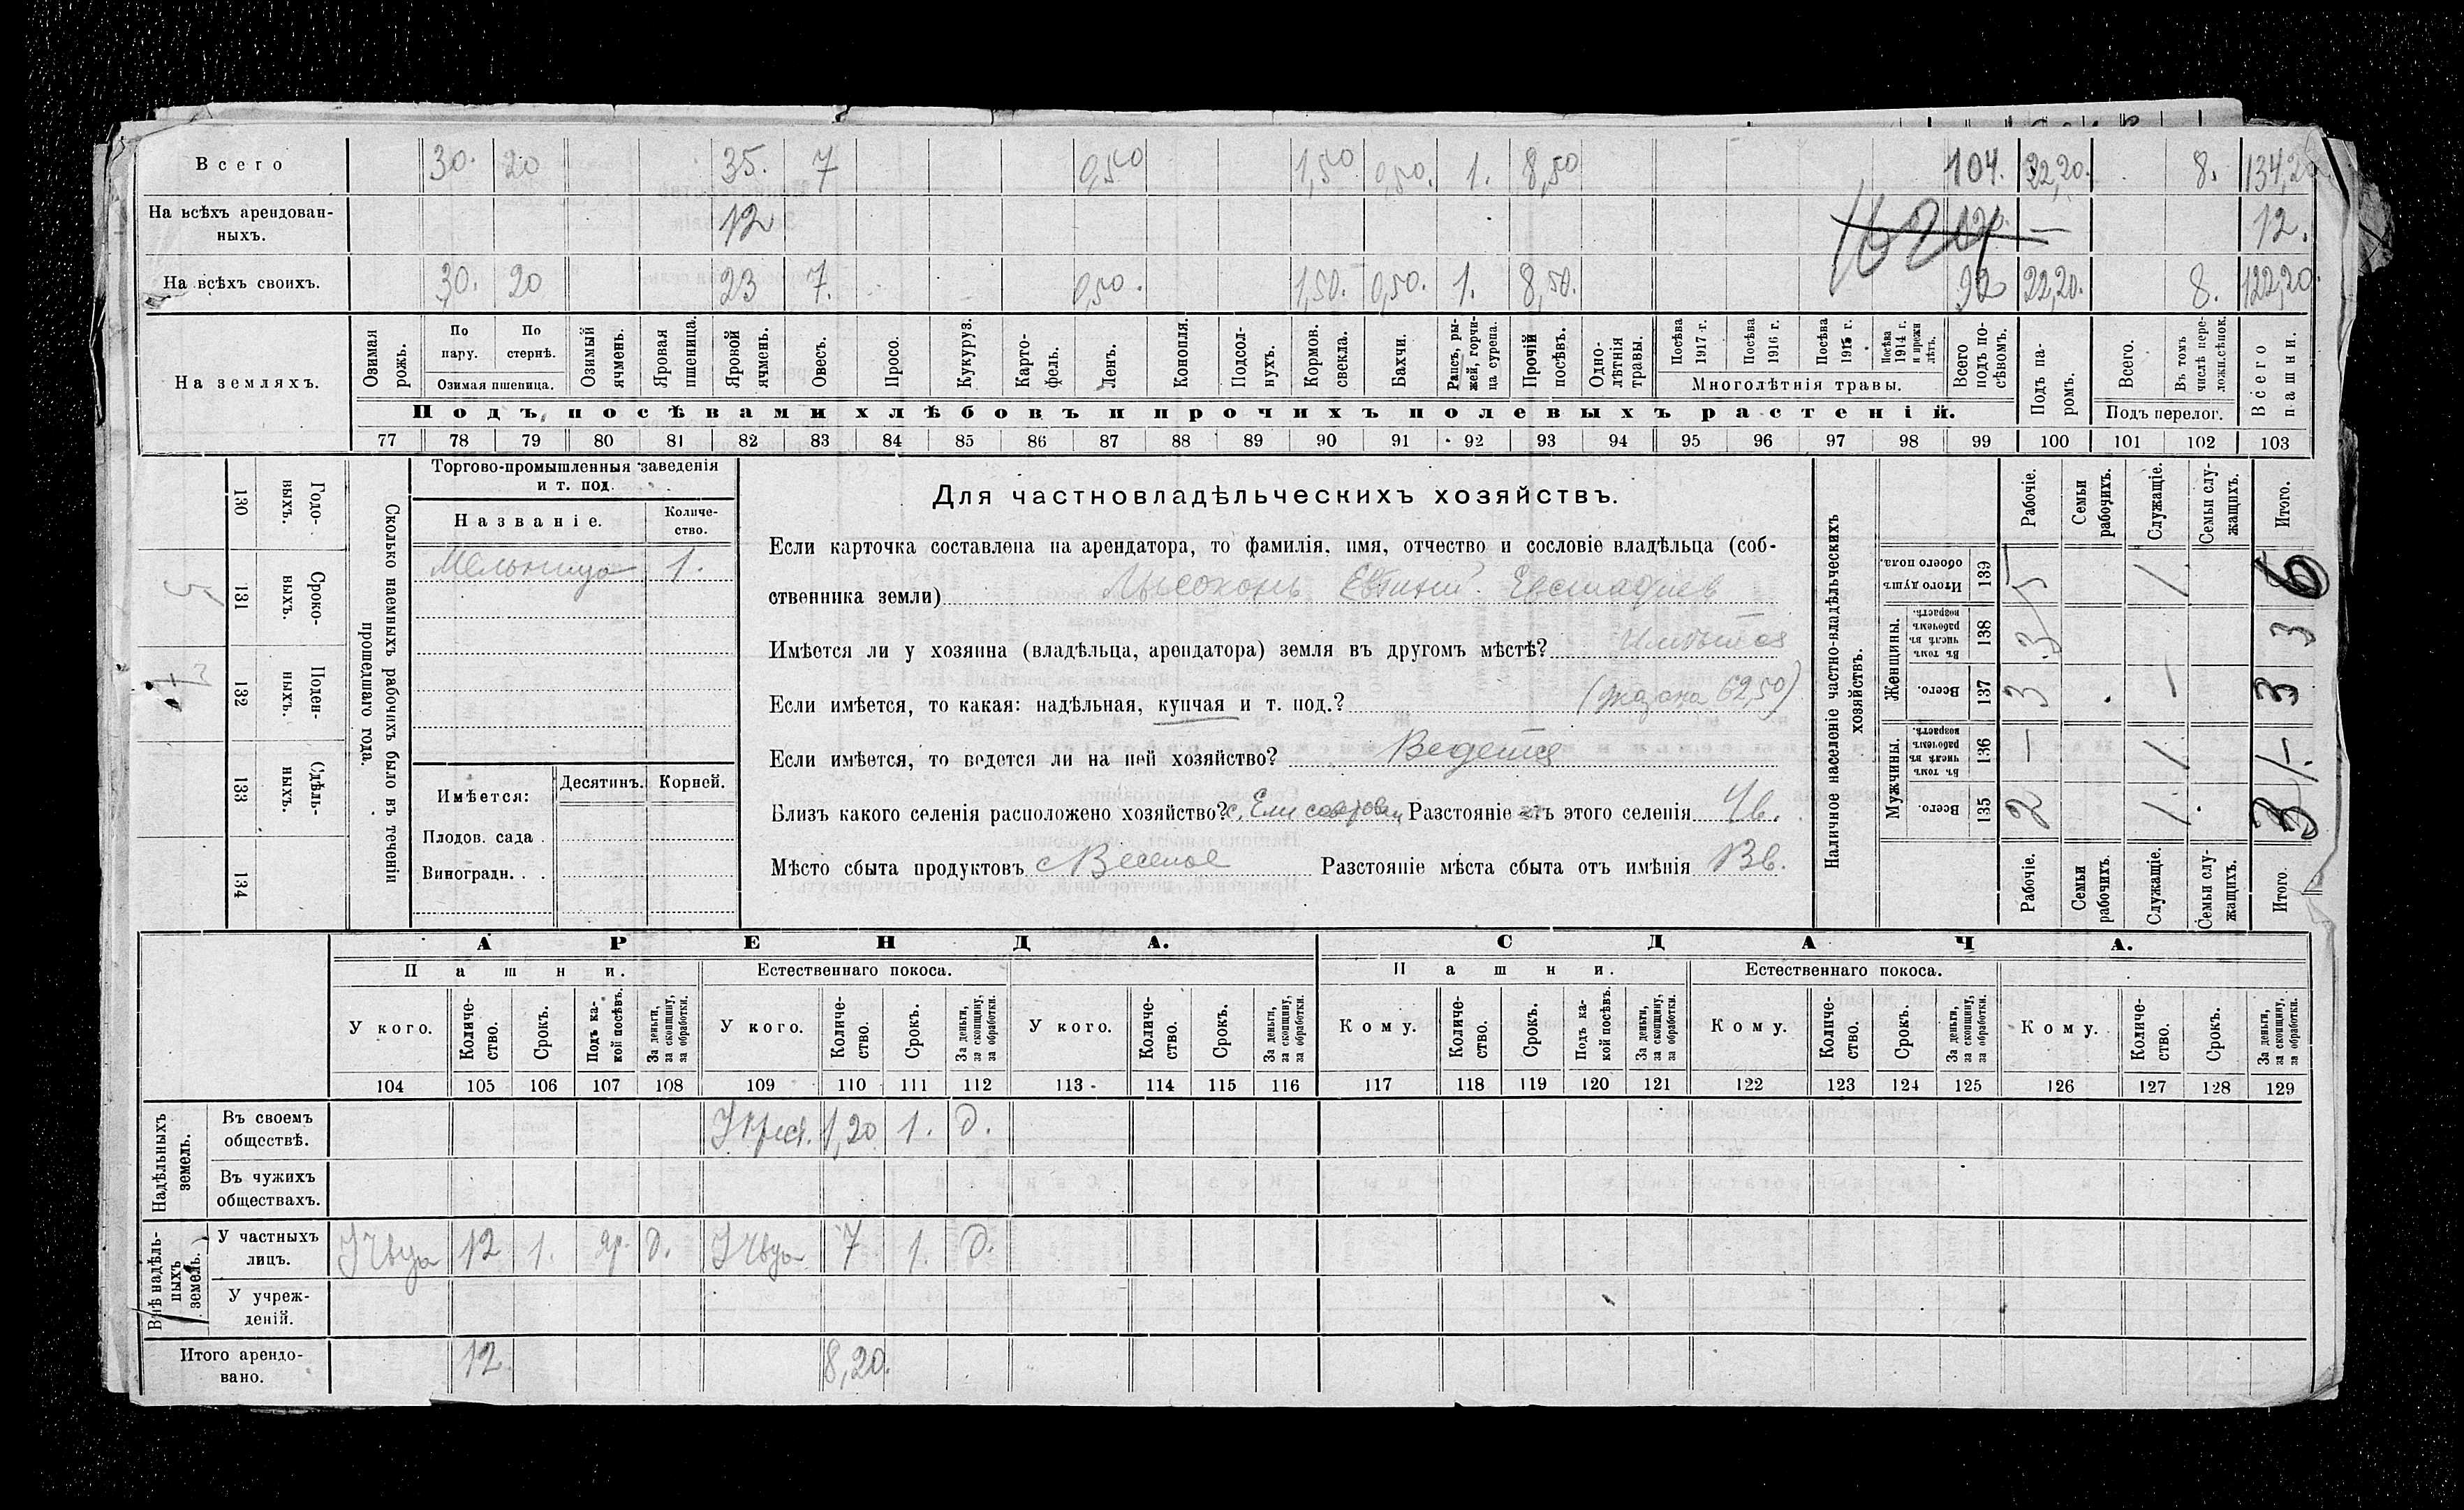 Всего 30. 20 35. 7 0,50 1,50 0,50. 1. 8,50 104. 22,20. 8. 134,20
На всѣхъ арендован-
ныхъ. 12 12.
На всѣхъ своихъ. 30. 20 23 7. 0,50. 1,50. 0,50. 1. 8,50. 92 22,20. 8. 122,20
На земляхъ.
Озимая рожь.
По пару.
По стернѣ.
Озимая пшеница.
Озимый ячмень.
Яровая пшеница.
Яровой ячмень.
Овесъ.
Просо.
Кукуруз.
Карто-
фель.
Ленъ.
Конопля.
Подсол-
нухъ.
Кормов. свекла.
Бахчи.
Рапсъ, ры-
жей, горчи-
ца сурепа.
Прочій посѣвъ.
Одно-
лѣтнія травы.
Посѣва 1917 г.
Посѣва 1916 г.
Посѣва 1915 г.
Посѣва 1914 г. и прежн лѣтъ.
Многолѣтнія травы.
Всего подъ по-
сѣвомъ.
Подъ па-
ромъ.
Всего.
Въ томъ числѣ пере-
ложн.сѣнок.
Подъ перелог.
Всего пашни.
Подъ посѣвами хлѣбовъ и прочихъ полевыхъ растеній.
77 78 79 80 81 82 83 84 85 86 87 88 89 90 91 92 93 94 95 96 97 98 99 100 101 102 103
Сколько наемныхъ рабочихъ было въ теченіи
прошедшаго года.
Годо-
выхъ.
130
Сроко-
выхъ.
131
5
Поден-
ныхъ.
132
Сдѣль-
ныхъ.
133
134
Торгово-промышленныя заведенія
и т. под.
Названіе.
Количе-
ство.
Мельница 1.
Имѣется: Десятинъ. Корней.
Плодов. сада .
Виноградн. . .
Для частновладѣльческихъ хозяйствъ.
Если карточка составлена на арендатора, то фамилія, имя, отчество и сословіе владѣльца (соб-
ственника земли)
Имѣется ли у хозяина (владѣльца, арендатора) земля въ другомъ мѣстѣ? Имѣется
Если имѣется, то какая: надѣльная, купчая и т. под.? 62,50)
Если имѣется, то ведется ли на ней хозяйство? Ведется
Близъ какого селенія расположено хозяйство? Разстояніе отъ этого селенія 4в.
Мѣсто сбыта продуктовъ с Веселое Разстояніе мѣста сбыта отъ имѣнія
Наличное населеніе частно-владѣльческихъ
хозяйствъ.
Рабочіе.
Семьи рабочихъ.
Служащіе.
Семьи слу-
жащихъ.
Итого.
Итого душъ обоего пола. 139 5 1 6
Женщины.
Въ томъ числѣ въ рабочемъ возрастѣ. 138 3 3
Всего. 137 3 - 3
Мужчины.
Въ томъ числѣ въ рабочемъ возрастѣ. 136 - 1 1
Всего. 135 2 1 3
Рабочіе.
Семьи рабочихъ.
Служащіе.
Семьи слу-
жащихъ.
Итого.
АРЕНДА. СДАЧА.
Пашни. Естественнаго покоса. Пашни. Естественнаго покоса.
У кого. Количе-
ство. Срокъ. Подъ ка-
кой посѣвъ. За деньги,
за скопщину,
за обработки.
У кого. Количе-
ство. Срокъ. За деньги,
за скопщину,
за обработки.
У кого. Количе-
ство. Срокъ. За деньги,
за скопщину,
за обработки.
Кому. Количе-
ство. Срокъ. Подъ ка-
кой посѣвъ. За деньги,
за скопщину,
за обработки.
Кому. Количе-
ство. Срокъ. За деньги,
за скопщину,
за обработки.
Кому. Количе-
ство. Срокъ. За деньги,
за скопщину,
за обработки.
104 105 106 107 108 109 110 111 112 113 114 115 116 117 118 119 120 121 122 123 124 125 126 127 128 129
Надѣльныхъ
земель.
Въ своемъ
обществѣ. 1,20 1. д.
Въ чужихъ
обществахъ.
Внѣ надѣль-
ныхъ
земель.
У частныхъ
лицъ. 12 1. яр. д. 7 1. д.
У учреж-
деній.
Итого арендо-
вано. 12 8,20.